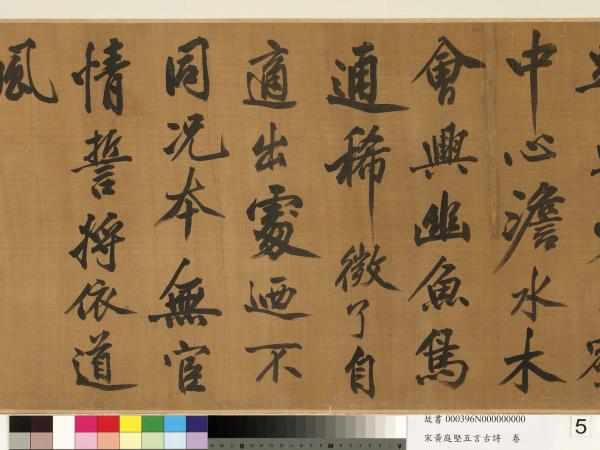 中心澹水木
會興幽魚鳥
通稀微了自
適出處迺不
同况本無宦
情誓將依道
風
故書 000396N000000000
宋黃庭堅五言古詩 卷
5